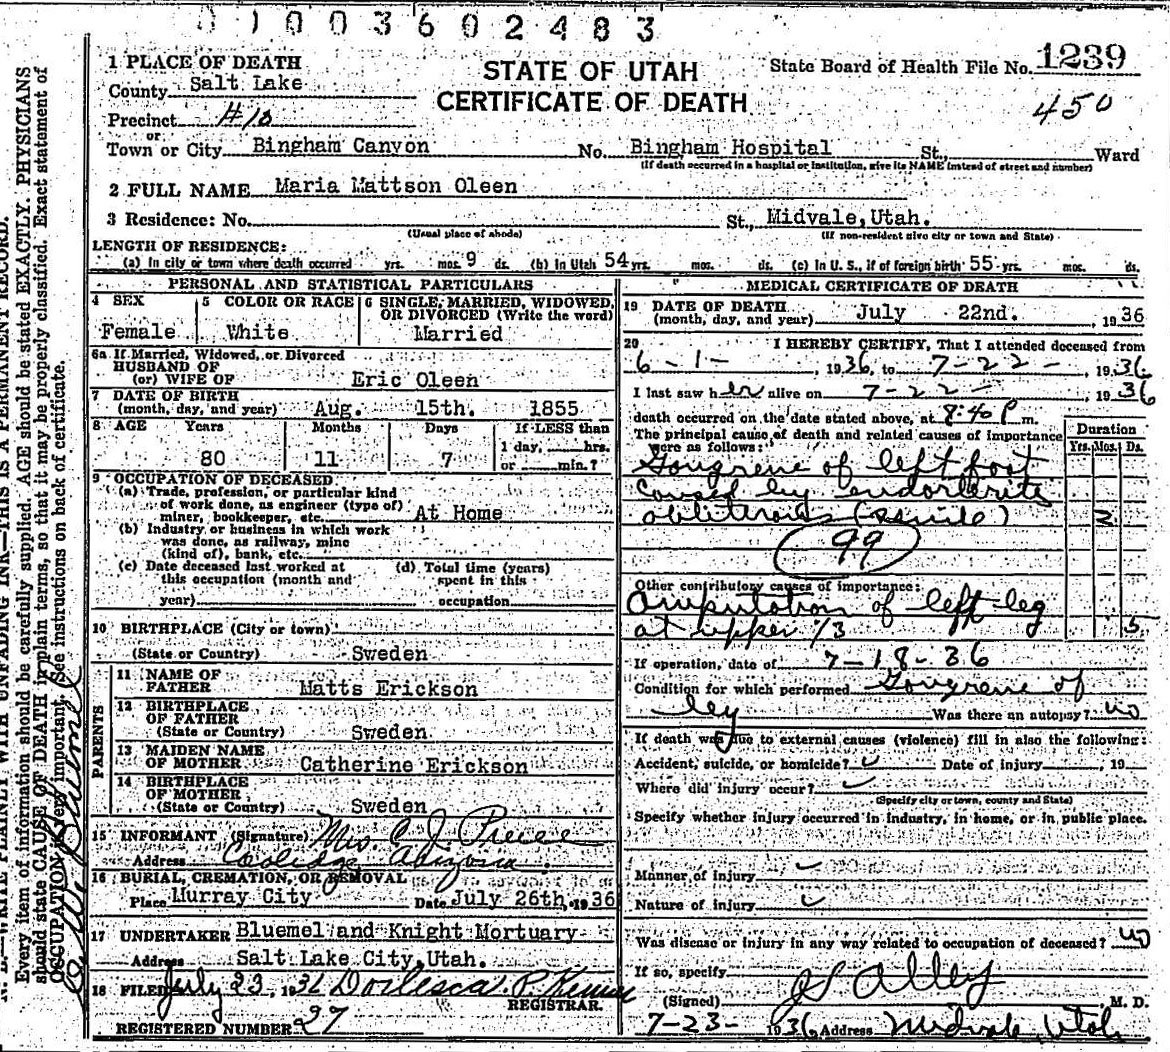 01003602483
1 PLACE OF DEATH
County Salt Lake
Precinct #10
or
Town or City Bingham Canyon No. Bingham Hospital St., Ward
(If death occurred in a hospital or institution, give its NAME instead of street and number)
STATE OF UTAH
CERTIFICATE OF DEATH
State Board of Health File No. 1239
450
2 FULL NAME Maria Mattson Oleen
3 Residence: No. St., Midvale, Utah.
(Usual place of abode) (If non-resident give city or town and State)
LENGTH OF RESIDENCE:
(a) In city or town where death occurred yrs. mos. 9 ds. (b) In Utah 54 yrs. mos. ds. (c) In U. S., if of foreign birth 55 yrs. mos. ds.
PERSONAL AND STATISTICAL PARTICULARS
4 SEX 5 COLOR OR RACE 6 SINGLE, MARRIED, WIDOWED, OR DIVORCED (Write the word)
Female White Married
6a If Married, Widowed, or Divorced
HUSBAND OF
(or) WIFE OF Eric Oleen
7 DATE OF BIRTH
(month, day, and year) Aug. 15th. 1855
8 AGE Years Months Days If LESS than
1 day, hrs.
80 11 7 or min.?
9 OCCUPATION OF DECEASED
(a) Trade, profession, or particular kind
of work done, as engineer (type of)
miner, bookkeeper, etc. At Home
(b) Industry or business in which work
was done, as railway, mine
(kind of), bank, etc.
(c) Date deceased last worked at (d) Total time (years)
this occupation (month and spent in this
year) occupation
10 BIRTHPLACE (City or town)
(State or Country) Sweden
PARENTS
11 NAME OF
FATHER Matts Erickson
12 BIRTHPLACE
OF FATHER
(State or Country) Sweden
13 MAIDEN NAME
OF MOTHER Catherine Erickson
14 BIRTHPLACE
OF MOTHER
(State or Country) Sweden
15 INFORMANT (Signature) Mrs. C. J.
Address Coolidge Arizona.
16 BURIAL, CREMATION, OR REMOVAL
Place Murray City Date July 26th, 1936
17 UNDERTAKER Bluemel and Knight Mortuary
Address Salt Lake City, Utah.
18 FILED July 23, 1936
REGISTRAR.
REGISTERED NUMBER 27
MEDICAL CERTIFICATE OF DEATH
19 DATE OF DEATH
(month, day, and year) July 22nd., 1936
20 I HEREBY CERTIFY, That I attended deceased from
6-1-, 1936, to 7-22-, 1936
I last saw her alive on 7-22-, 1936
death occurred on the date stated above, at 8:40 P m.
The principal cause of death and related causes of importance
were as follows:
Duration
Yrs. Mos. Ds.
Gangrene of left foot
caused by endarteritis
obliterans (senile) 2
99
Other contributory causes of importance:
Amputation of left leg
at upper 1/3 5
If operation, date of 7-18-36
Condition for which performed Gangrene of
leg Was there an autopsy? no
If death was due to external causes (violence) fill in also the following:
Accident, suicide, or homicide? Date of injury, 19
Where did injury occur?
(Specify city or town, county and State)
Specify whether injury occurred in industry, in home, or in public place.
Manner of injury
Nature of injury
Was disease or injury in any way related to occupation of deceased? no
If so, specify
(Signed) Alley M. D.
7-23- 1936 Address Midvale, Utah
N. B.—WRITE PLAINLY WITH UNFADING INK—THIS IS A PERMANENT RECORD.
Every item of information should be carefully supplied. AGE should be stated EXACTLY. PHYSICIANS
should state CAUSE OF DEATH in plain terms, so that it may be properly classified. Exact statement of
OCCUPATION is very important. (See instructions on back of certificate.